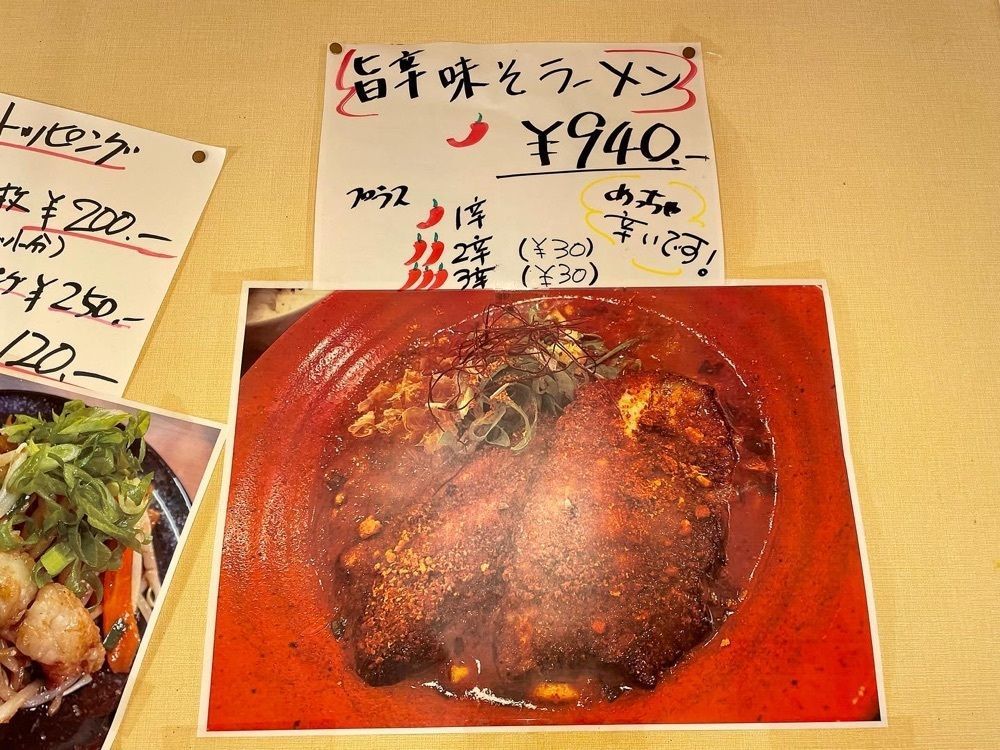 トッピング
枚 ¥200.-
¥250.-
120.-
旨辛味そラーメン
¥940.-
プラス
1辛
2辛 (¥30)
3辛 (¥30)
めっちゃ
辛いです!